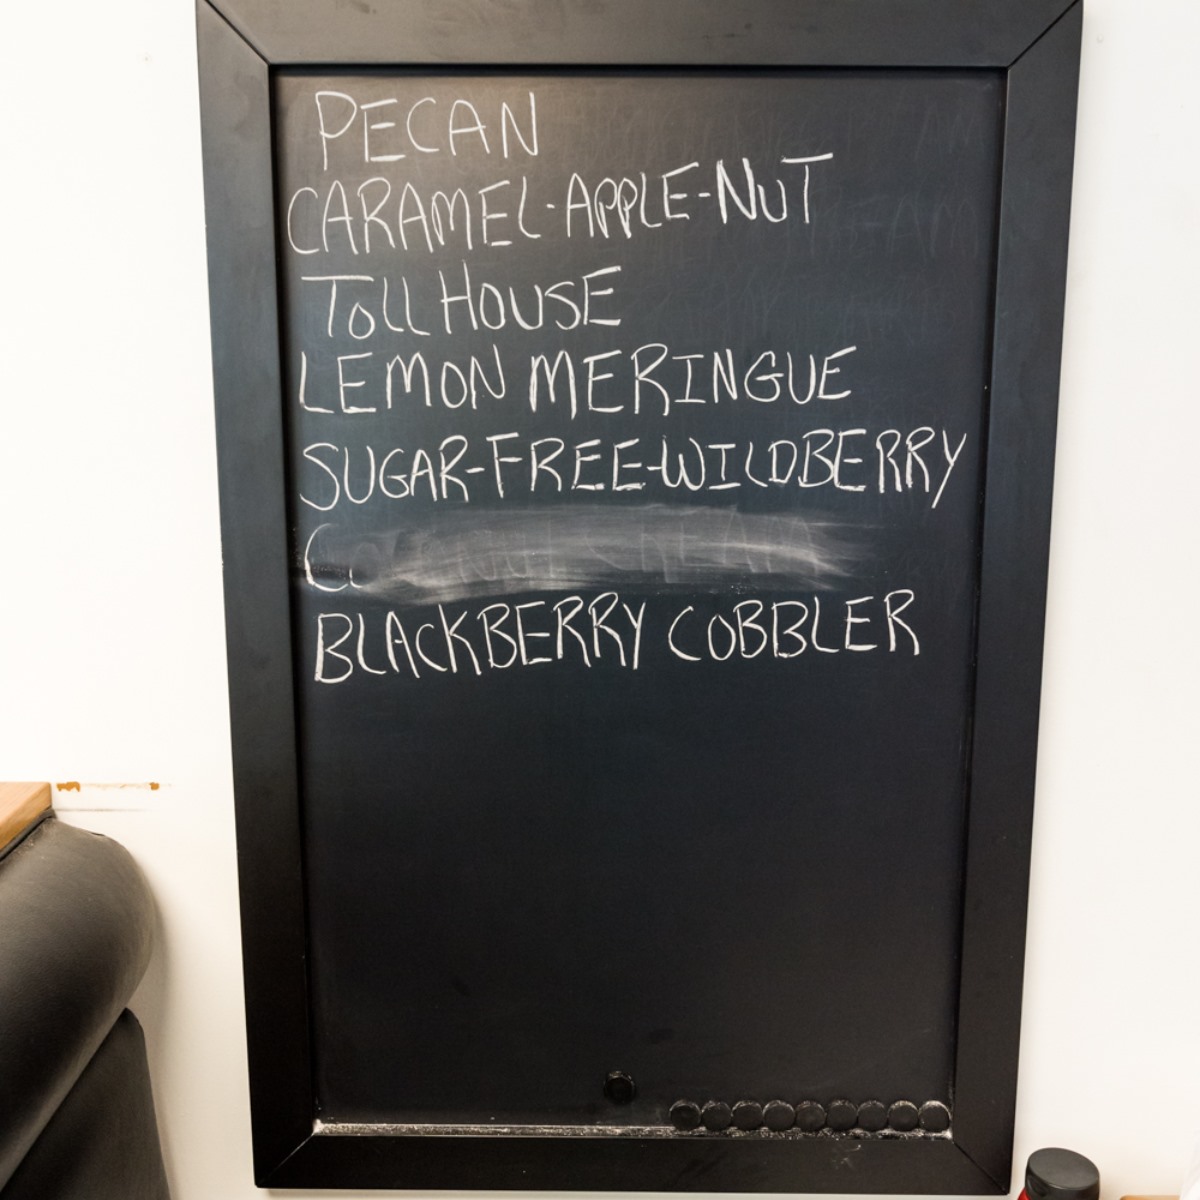 PECAN
CARAMEL-APPLE-NUT
TOLL HOUSE
LEMON MERINGUE
SUGAR-FREE-WILDBERRY
BLACKBERRY COBBLER